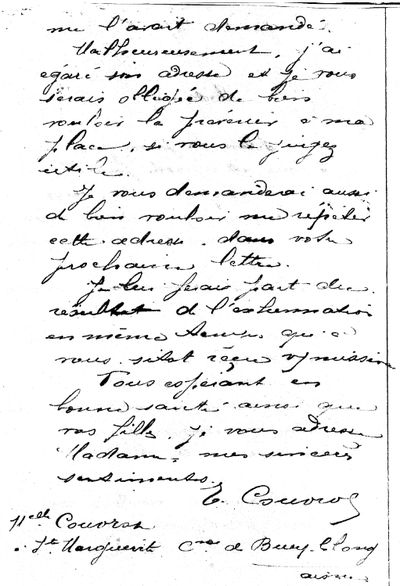 me l'avait demandé.
Malheureusement, j'ai
égaré son adresse et je vous
serais obligée de bien
vouloir le prévenir à ma
place, si vous le jugez
utile.
Je vous demanderai aussi
de bien vouloir me répéter
cette adresse dans votre
prochaine lettre.
Je lui ferais part du
résultat de l'exhumation
en même temps qu'à
vous sitôt reçu
Vous espérant en
bonne santé ainsi que
vos filles, je vous adresse
Madame, mes sincères
sentiments.
Melle
Ste Marguerite Cne de Bucy le Long
Aisne